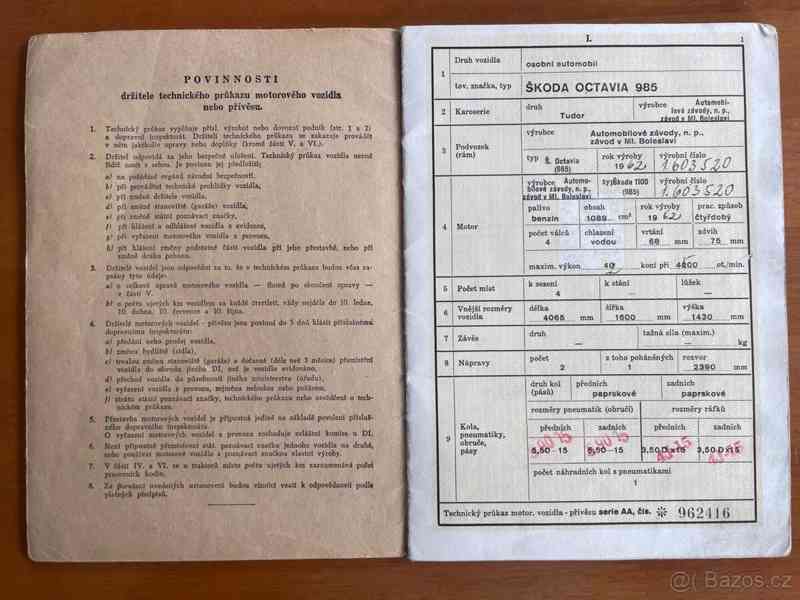 POVINNOSTI
držitele technického průkazu motorového vozidla
nebo přívěsu.
1. Technický průkaz vyplňuje přísl. výrobní nebo dovozní podnik (str. 1 a 2)
a dopravní inspektorát. Držiteli technického průkazu se zakazuje provádět
v něm jakékoliv opravy nebo doplňky (kromě části V. a VI.).
2. Držitel odpovídá za jeho bezpečné uložení. Technický průkaz vozidla nesmí
řidič nosit s sebou. Je povinen jej předložiti:
a) na požádání orgánů národní bezpečnosti,
b) při provádění technické prohlídky vozidla,
c) při změně držitele vozidla,
d) při změně stanoviště (garáže) vozidla,
e) při změně státní poznávací značky,
f) při hlášení a odhlášení vozidla z evidence,
g) při vyřazení motorového vozidla z provozu,
h) při hlášení změny podstatné části vozidla při jeho přestavbě, nebo při
změně druhu pohonu.
3. Držitelé vozidel jsou odpovědní za to, že v technickém průkazu budou včas
zapsány tyto údaje:
a) o celkové opravě motorového vozidla — ihned po skončení opravy —
v části V.
b) o počtu ujetých km vozidlem za každé čtvrtletí, vždy nejdéle do 10. ledna,
10. dubna, 10. července a 10. října.
4. Držitelé motorových vozidel - přívěsu jsou povinni do 5 dnů hlásit příslušnému
dopravnímu inspektorátu:
a) předání nebo prodej vozidla,
b) změnu bydliště (sídla),
c) trvalou změnu stanoviště (garáže) a dočasné (déle než 3 měsíce) přemístění
vozidla do obvodu jiného DI, než je vozidlo evidováno,
d) přechod vozidla do působnosti jiného ministerstva (úřadu),
e) vyřazení vozidla z provozu, nejméně nebo požárem,
f) ztrátu státní poznávací značky, technického průkazu nebo osvědčení o technickém průkazu.
5. Přestavba motorových vozidel je přípustná jedině na základě povolení příslušného dopravního inspektorátu.
O vyřazení motorových vozidel z provozu rozhoduje zvláštní komise u DI.
6. Není přípustné přemísťování stát. poznávací značky jednoho vozidla na druhé,
nebo používat motorové vozidla s poznávací značkou vlastní výroby.
7. V části IV. a VI. se u traktorů místo počtu ujetých km zaznamenává počet
pracovních hodin.
8. Za porušení uvedených ustanovení budou viníci vzati k odpovědnosti podle
platných předpisů.
I.
1
1 Druh vozidla osobní automobil
tov. značka, typ ŠKODA OCTAVIA 985
2 Karoserie druh Tudor výrobce Automobilové závody, n. p., závod v Ml. Boleslavi
3 Podvozek (rám) výrobce Automobilové závody, n. p., závod v Ml. Boleslavi
typ Š. Octavia (985) rok výroby 1962 výrobní číslo 1.603520
4 Motor výrobce Automobilové závody, n. p., závod v Ml. Boleslavi typ Škoda 1100 (985) výrobní číslo 1.603520
palivo benzin obsah 1089 cm³ rok výroby 1962 prac. způsob čtyřdobý
počet válců 4 chlazení vodou vrtání 68 mm zdvih 75 mm
maxim. výkon 40 koní při 4200 ot./min.
5 Počet míst k sezení 4 k stání — lůžek —
6 Vnější rozměry vozidla délka 4065 mm šířka 1600 mm výška 1430 mm
7 Závěs druh — tažná síla (maxim.) — kg
8 Nápravy počet 2 z toho poháněných 1 rozvor 2390 mm
9 Kola, pneumatiky, obruče, pásy
druh kol (pásů) předních paprskové zadních paprskové
rozměry pneumatik (obručí) rozměry ráfků
předních zadních předních zadních
5.90-15 5.90-15 4J-15 4J-15
5,50-15 5,50-15 3,50 D×15 3,50 D×15
počet náhradních kol s pneumatikami
1
Technický průkaz motor. vozidla - přívěsu serie AA, čís. ✻ 962416
@ Bazos.cz